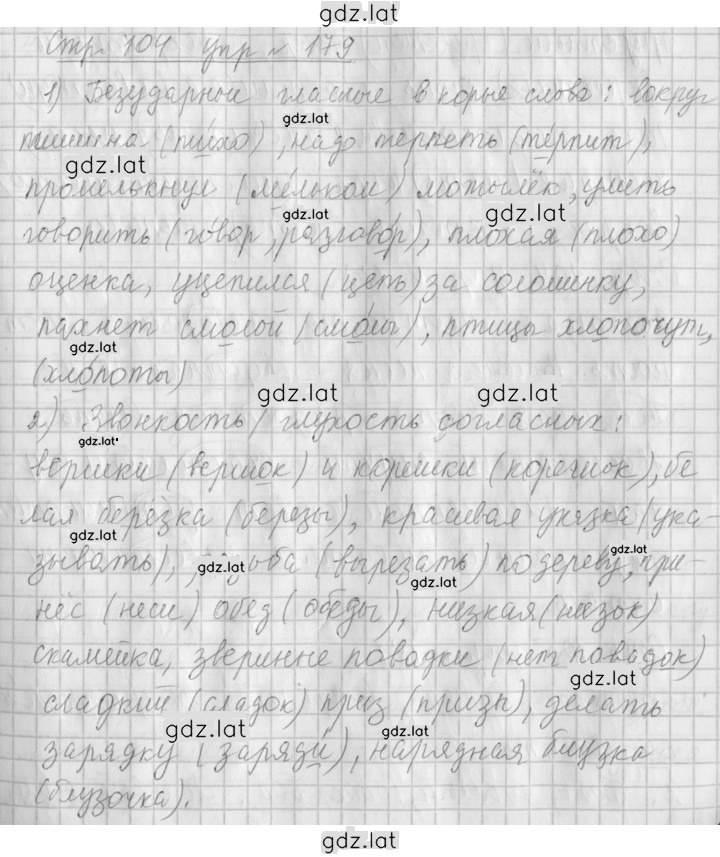 gdz.lat
Стр. 104 упр № 179
1) Безударные гласные в корне слова: вокруг
gdz.lat
тишина (тихо), надо терпеть (терпит),
gdz.lat
промелькнул (мельком) мотылёк, уметь
gdz.lat gdz.lat
говорить (говор, разговор), плохая (плохо)
оценка, уцепился (цепь) за соломинку,
пахнет смолой (смолы), птицы хлопочут,
gdz.lat
(хлопоты)
gdz.lat gdz.lat
2) Звонкость/глухость согласных:
gdz.lat
вершки (вершок) и корешки (корешок), бе
лая берёзка (березы), красивая указка (ука-
gdz.lat gdz.lat
зывать), (вырезать) по дереву, при-
gdz.lat gdz.lat
нёс (неси) обед (обеды), низкая (низок)
скамейка, звериные повадки (нет повадок)
gdz.lat
сладкий (сладок) приз (призы), делать
gdz.lat gdz.lat
зарядку (заряди), нарядная блузка
(блузочка).
gdz.lat